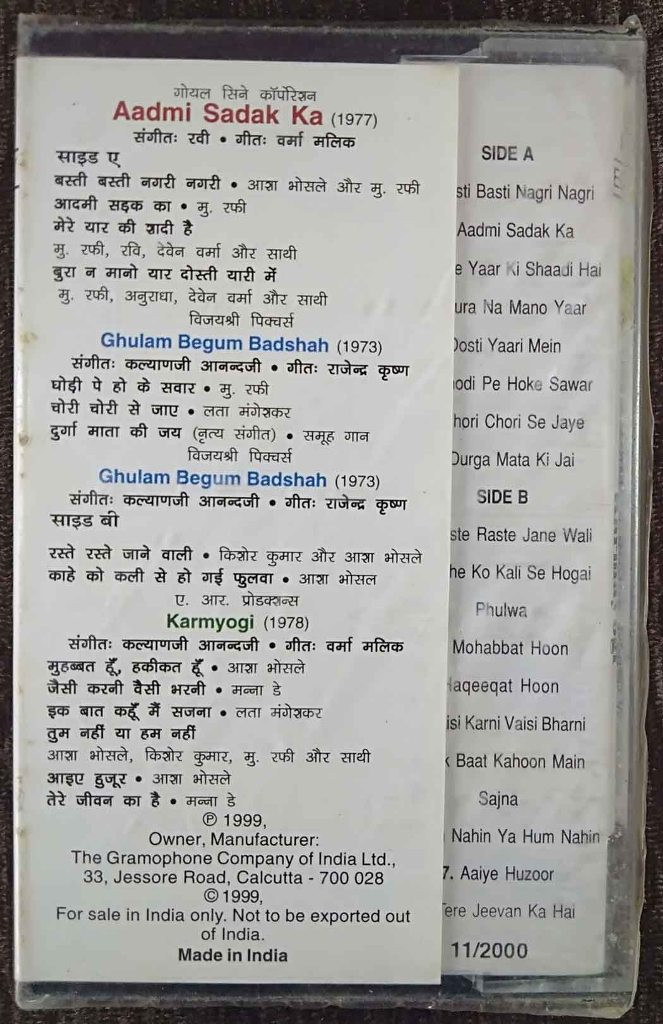 गोयल सिने कॉर्पोरेशन
Aadmi Sadak Ka (1977)
संगीतः रवी • गीतः वर्मा मलिक
साइड ए
बस्ती बस्ती नगरी नगरी • आशा भोसले और मु. रफी
आदमी सड़क का • मु. रफी
मेरे यार की शादी है
मु. रफी, रवि, देवेन वर्मा और साथी
बुरा न मानो यार दोस्ती यारी में
मु. रफी, अनुराधा, देवेन वर्मा और साथी
विजयश्री पिक्चर्स
Ghulam Begum Badshah (1973)
संगीतः कल्याणजी आनन्दजी • गीतः राजेन्द्र कृष्ण
घोड़ी पे हो के सवार • मु. रफी
चोरी चोरी से जाए • लता मंगेशकर
दुर्गा माता की जय (नृत्य संगीत) • समूह गान
विजयश्री पिक्चर्स
Ghulam Begum Badshah (1973)
संगीतः कल्याणजी आनन्दजी • गीतः राजेन्द्र कृष्ण
साइड बी
रस्ते रस्ते जाने वाली • किशोर कुमार और आशा भोसले
काहे को कली से हो गई फुलवा • आशा भोसल
ए. आर. प्रोडक्शन्स
Karmyogi (1978)
संगीतः कल्याणजी आनन्दजी • गीतः वर्मा मलिक
मुहब्बत हूँ, हकीकत हूँ • आशा भोसले
जैसी करनी वैसी भरनी • मन्ना डे
इक बात कहूँ मैं सजना • लता मंगेशकर
तुम नहीं या हम नहीं
आशा भोसले, किशोर कुमार, मु. रफी और साथी
आइए हुजूर • आशा भोसले
तेरे जीवन का है • मन्ना डे
℗ 1999,
Owner, Manufacturer:
The Gramophone Company of India Ltd.,
33, Jessore Road, Calcutta - 700 028
© 1999,
For sale in India only. Not to be exported out
of India.
Made in India
SIDE A
sti Basti Nagri Nagri
Aadmi Sadak Ka
e Yaar Ki Shaadi Hai
ura Na Mano Yaar
Dosti Yaari Mein
odi Pe Hoke Sawar
hori Chori Se Jaye
Durga Mata Ki Jai
SIDE B
ste Raste Jane Wali
he Ko Kali Se Hogai
Phulwa
Mohabbat Hoon
Haqeeqat Hoon
isi Karni Vaisi Bharni
k Baat Kahoon Main
Sajna
Nahin Ya Hum Nahin
7. Aaiye Huzoor
Tere Jeevan Ka Hai
11/2000